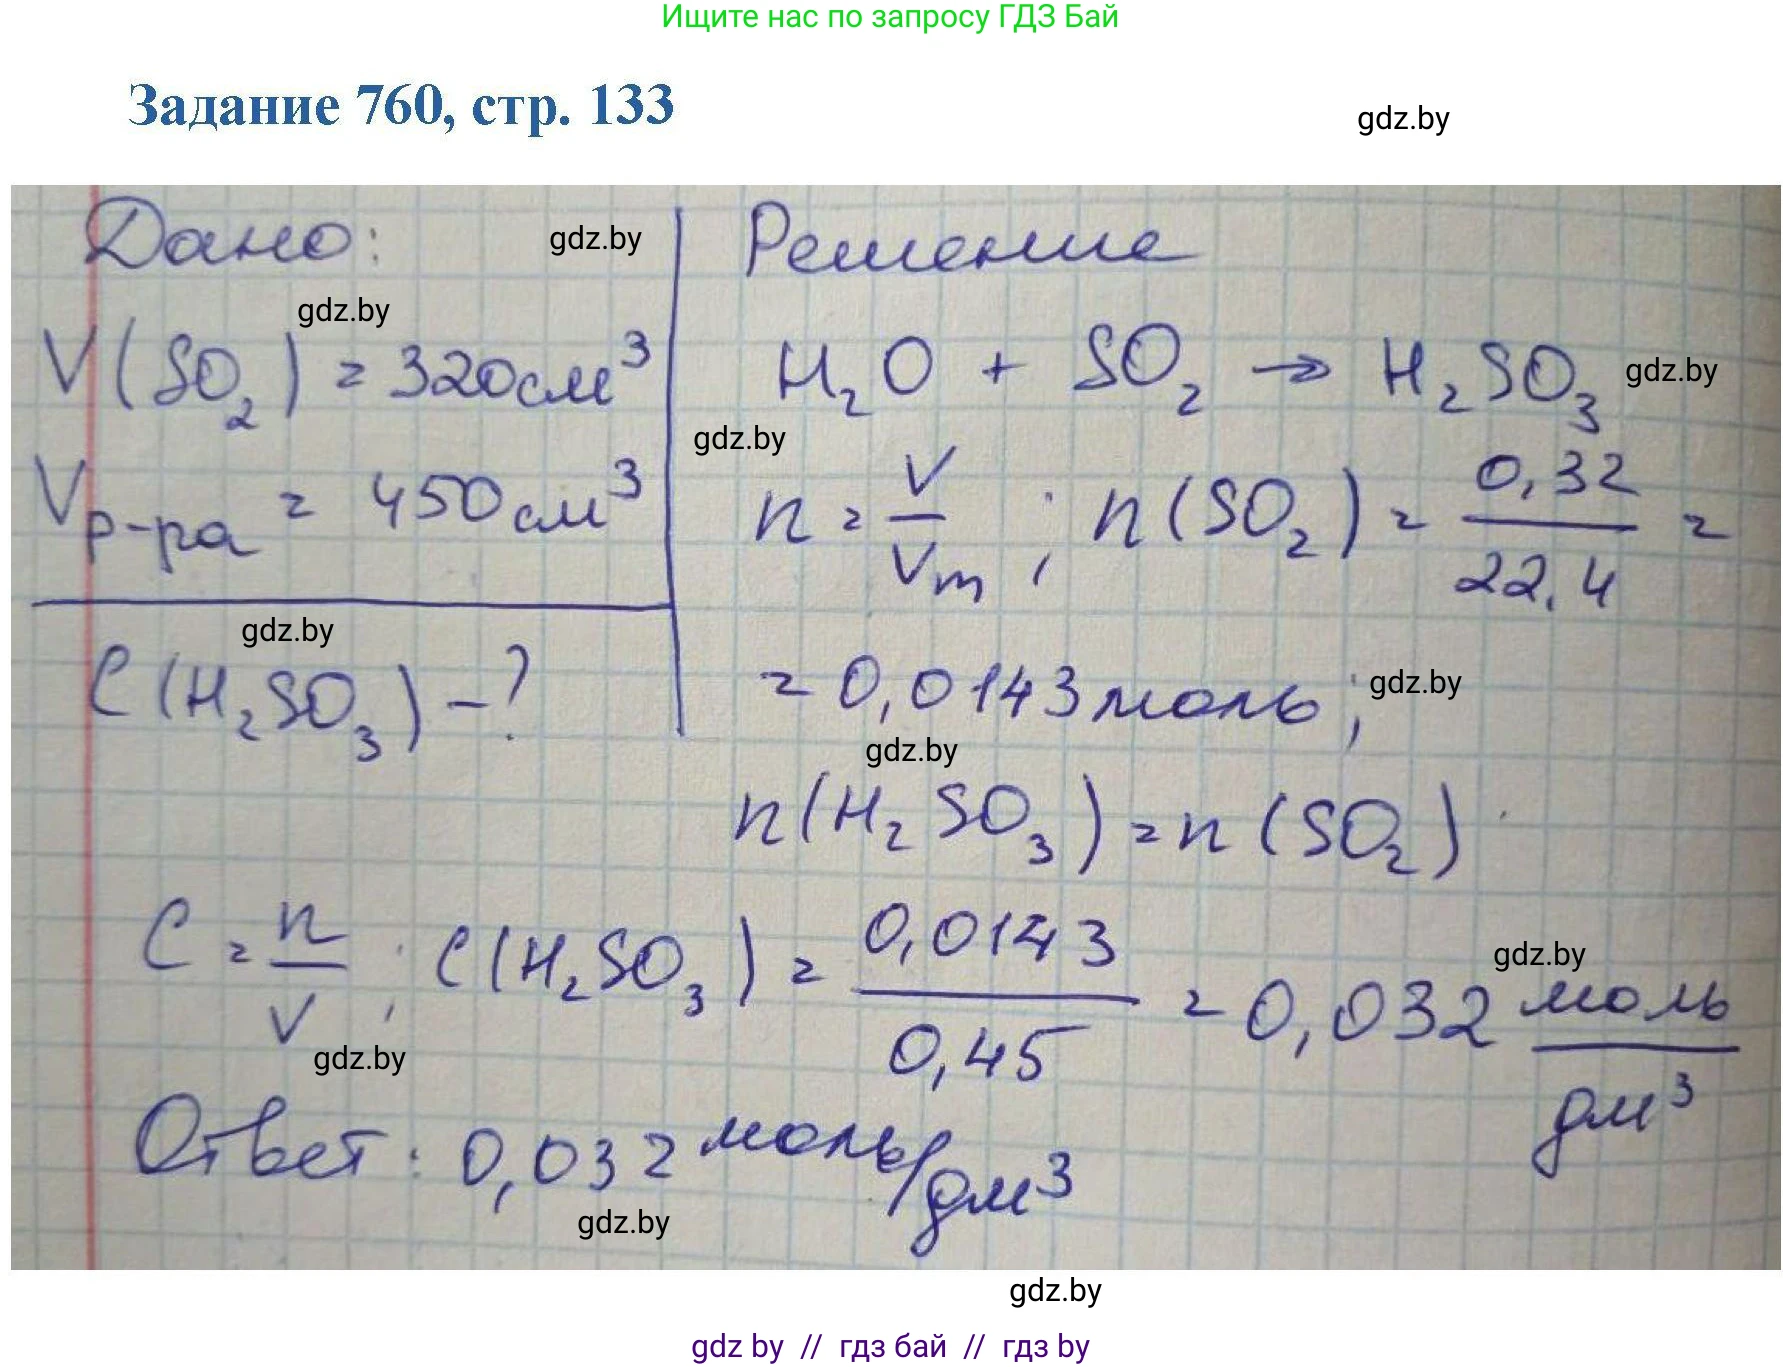 Ищите нас по запросу ГДЗ Бай
Задание 760, стр. 133
gdz.by
Дано:
gdz.by
gdz.by
V(SO₂) = 320см³
Vр-ра = 450см³
gdz.by
C(H₂SO₃) - ?
Решение
H₂O + SO₂ → H₂SO₃
gdz.by
gdz.by
n = V/Vm ; n(SO₂) = 0,32/22,4 =
= 0,0143 моль;
gdz.by
gdz.by
n(H₂SO₃) = n(SO₂)
C = n/V ; C(H₂SO₃) = 0,0143/0,45 = 0,032 моль/дм³
gdz.by
gdz.by
Ответ: 0,032 моль/дм³
gdz.by
gdz.by
gdz by // гдз бай // гдз by